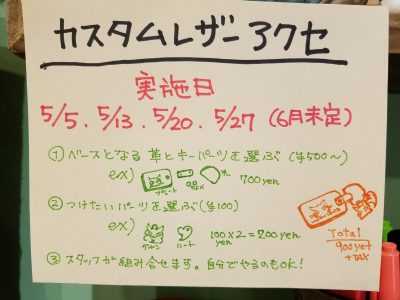 カスタムレザーアクセ
実施日
5/5. 5/13. 5/20. 5/27 (6月未定)
① ベースとなる 革とキーパーツを選ぶ (¥500〜)
ex)
プレート
革
700yen
② つけたいパーツを選ぶ(¥100)
ex)
ハート
100×2=200yen
yen
③ スタッフが組み合せます。自分でやるのもOK!
Total
900yen
+TAX